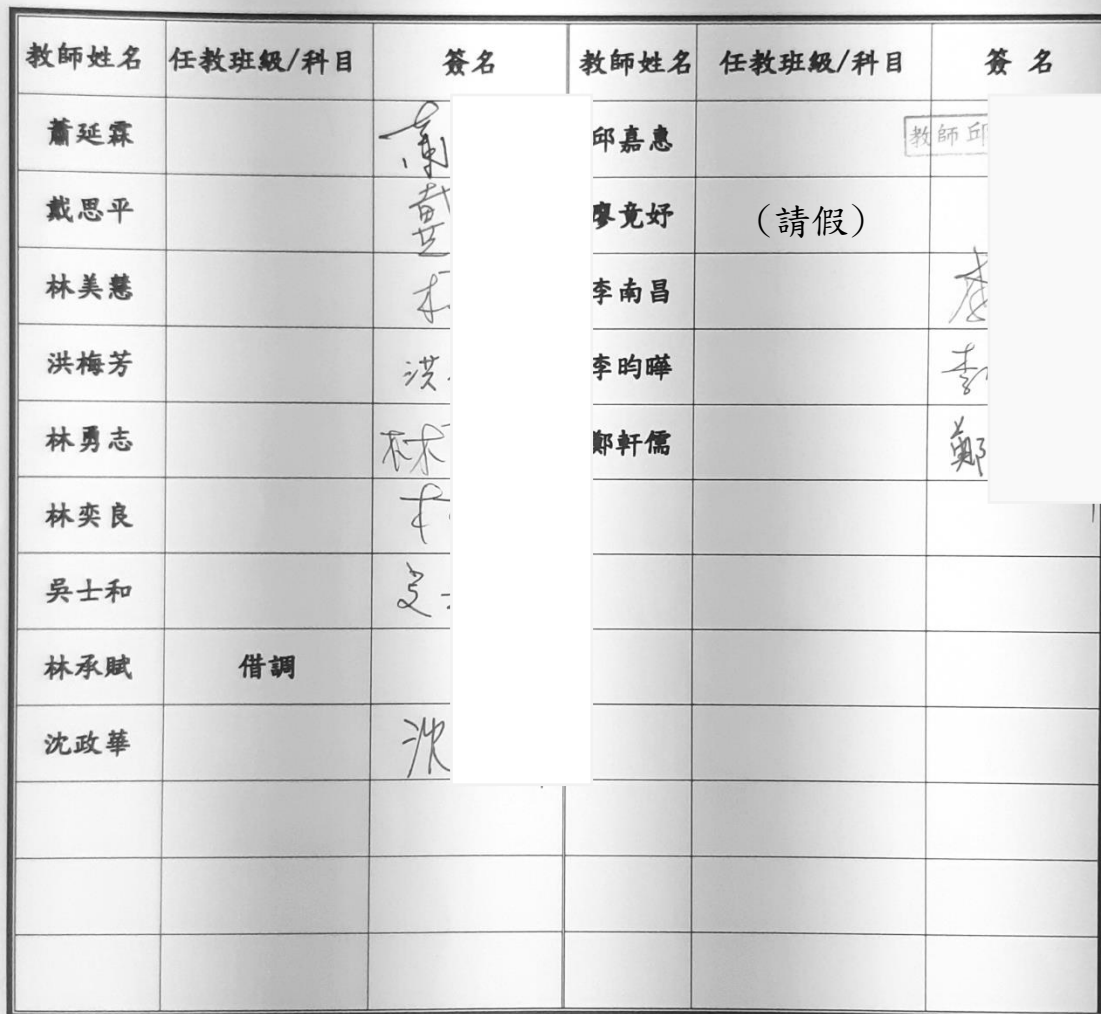 教師姓名 任教班級/科目 簽名 教師姓名 任教班級/科目 簽 名
蕭延霖 蕭 邱嘉惠 教師邱
戴思平 戴 廖竟妤 (請假)
林美慧 林 李南昌 李
洪梅芳 洪 李昀曄 李
林勇志 林 鄭軒儒 鄭
林奕良 林
吳士和 吳士
林承賦 借調
沈政華 沈